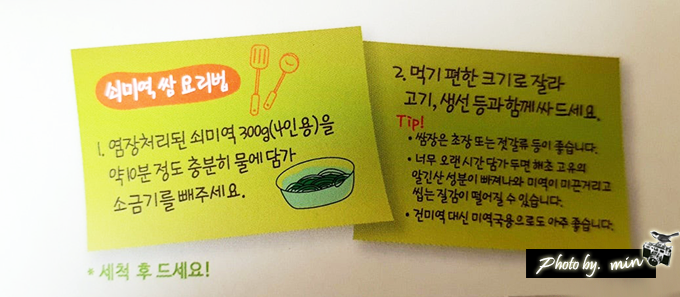 쇠미역 쌈 요리법
1. 염장처리된 쇠미역 300g(4인용)을
약10분 정도 충분히 물에 담가
소금기를 빼주세요.
* 세척 후 드세요!
2. 먹기 편한 크기로 잘라
고기, 생선 등과 함께 싸 드세요.
Tip!
• 쌈장은 초장 또는 젓갈류 등이 좋습니다.
• 너무 오랜 시간 담가 두면 해초 고유의
알긴산 성분이 빠져나와 미역이 미끈거리고
씹는 질감이 떨어질 수 있습니다.
• 건미역 대신 미역국용으로도 아주 좋습니다.
Photo by. min